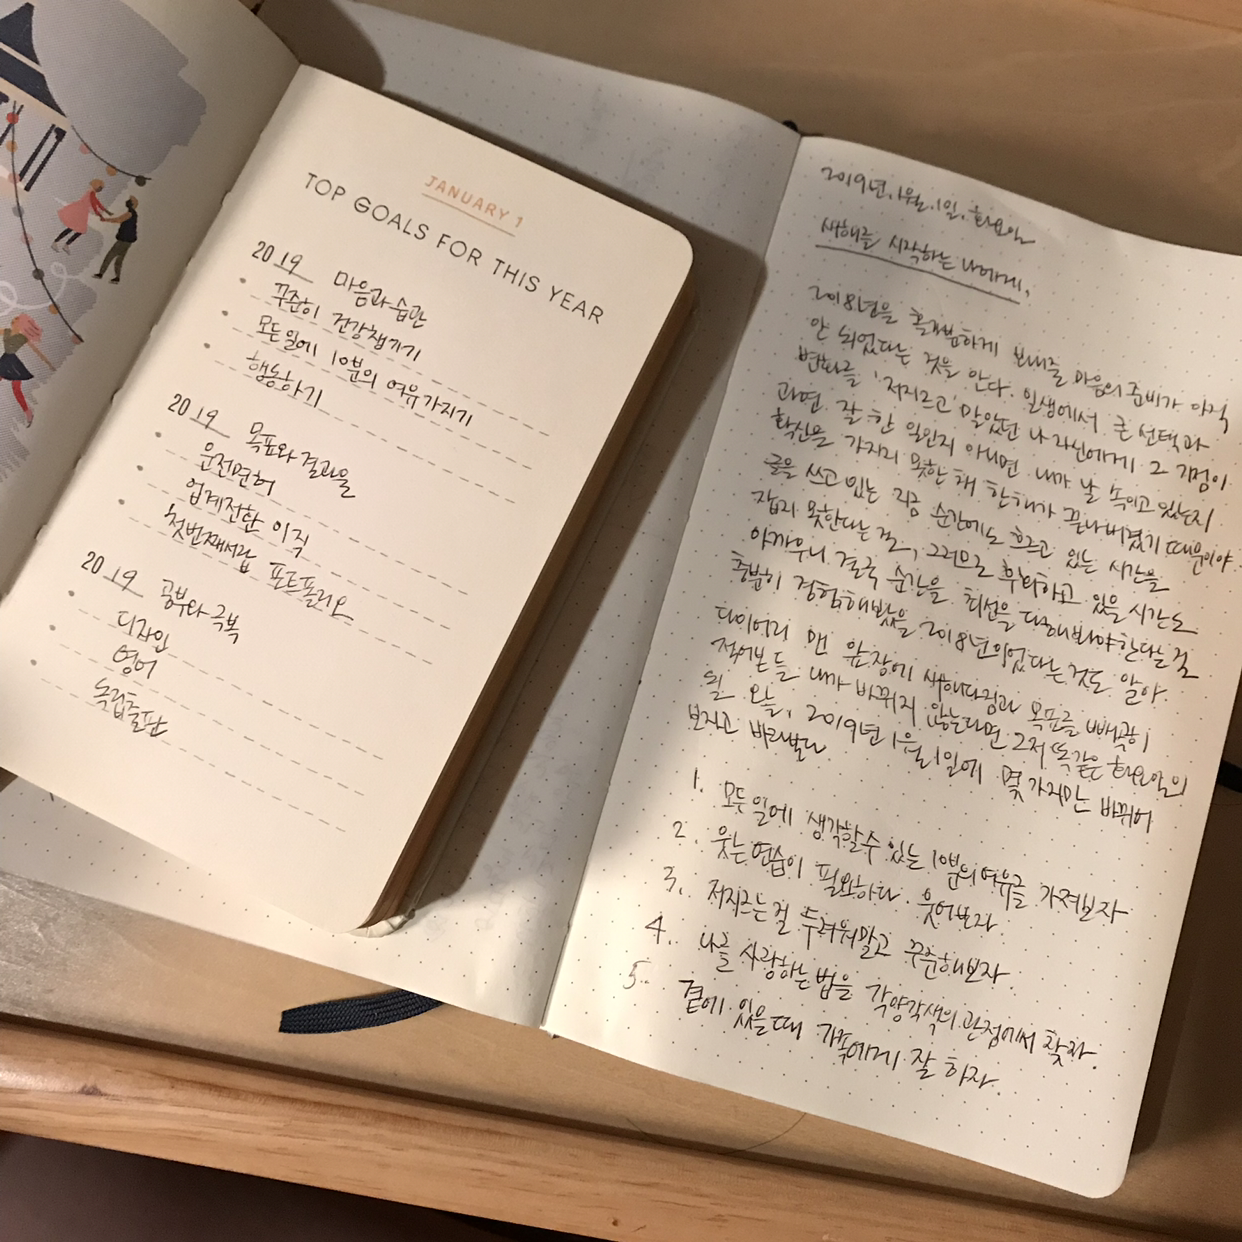 JANUARY 1
TOP GOALS FOR THIS YEAR
2019 마음과 습관
꾸준히 건강챙기기
모든일에 10분의 여유가지기
행동하기
2019 목표와 결과물
운전면허
업계전환 이직
첫번째서랍 포트폴리오
2019 공부와 극복
디자인
영어
독립출판
2019년.1월.1일. 화요일
새해를 시작하는 나에게,
2018년을 홀가분하게 보내줄 마음의 준비가 아직
안 되었다는 것을 안다. 일생에서 큰 선택과
변화를 '저지르고' 말았던 나 자신에게 그 결정이
과연 잘 한 일인지 아니면 내가 날 속이고 있는지
확신을 가지지 못한 채 한해가 끝나버렸기 때문이야.
글을 쓰고 있는 지금 순간에도 흐르고 있는 시간을
잡지 못한다는 걸, 그러므로 후회하고 있을 시간도
아까우니 결국 순간을 최선을 다해봐야한다는 걸
충분히 경험해봤을 2018년이었다는 것도 알아.
다이어리 맨 앞장에 새해다짐과 목표를 빼곡히
적어본들 내가 바뀌지 않는다면 그저 똑같은 화요일이
될 오늘, 2019년 1월 1일에 몇가지만 바뀌어
보자고 바래본다
1. 모든일에 생각할수 있는 10분의 여유를 가져보자
2. 웃는연습이 필요하다. 웃어보자
3. 저지르는걸 두려워말고 꾸준해보자.
4. 나를 사랑하는법을 각양각색의 관점에서 찾자.
5. 곁에 있을때 가족에게 잘 하자.